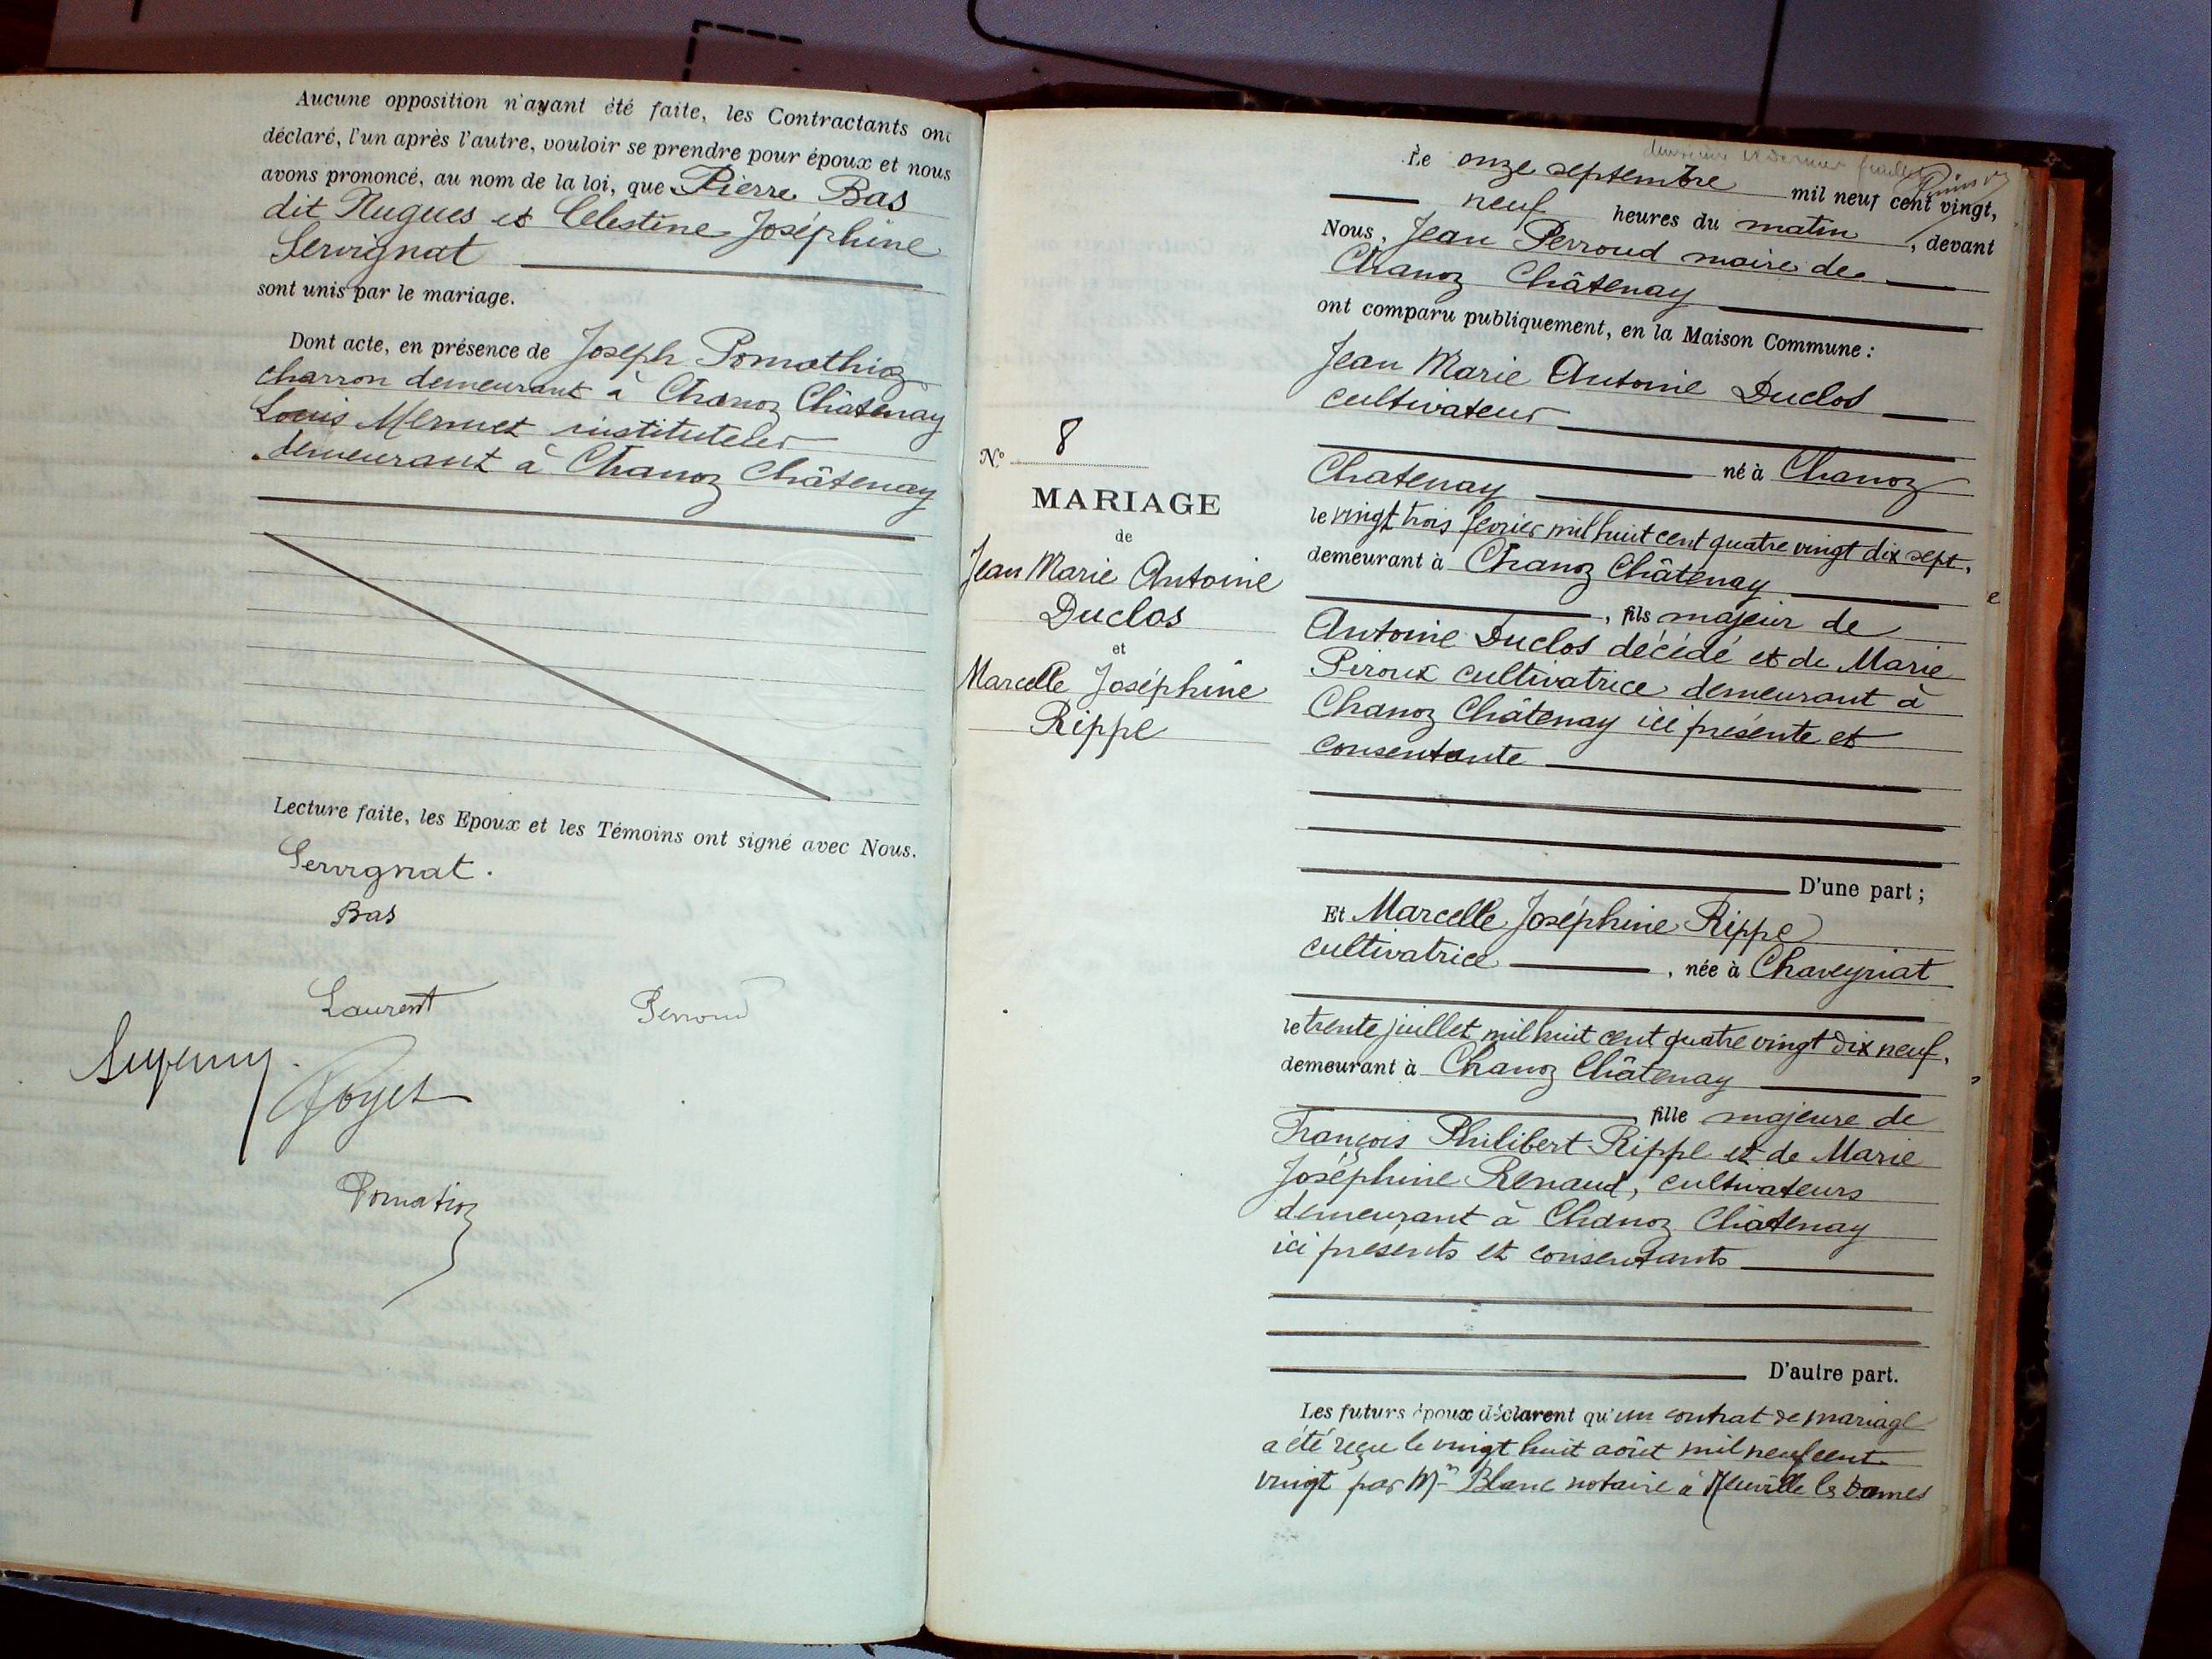 Aucune opposition n'ayant été faite, les Contractants ont
déclaré, l'un après l'autre, vouloir se prendre pour époux et nous
avons prononcé, au nom de la loi, que Pierre Bas
dit Nugues et Célestine Joséphine
Servignat
sont unis par le mariage.
Dont acte, en présence de Joseph Pomathioz
charron demeurant à Chanoz Châtenay
Louis Mermet instituteur
demeurant à Chanoz Châtenay
Lecture faite, les Epoux et les Témoins ont signé avec Nous.
Servignat.
Bas
Laurent
Perroud
Goyet
Pomatioz
N° 8
MARIAGE
de
Jean Marie Antoine
Duclos
et
Marcelle Joséphine
Rippe
deuxième et dernier feuillet
Le onze septembre mil neuf cent vingt,
neuf heures du matin, devant
Nous, Jean Perroud maire de
Chanoz Châtenay
ont comparu publiquement, en la Maison Commune :
Jean Marie Antoine Duclos
cultivateur
né à Chanoz
Chatenay
le vingt trois février mil huit cent quatre vingt dix sept,
demeurant à Chanoz Châtenay
, fils majeur de
Antoine Duclos décédé et de Marie
Piroux cultivatrice demeurant à
Chanoz Châtenay ici présente et
consentante
D'une part ;
Et Marcelle Joséphine Rippe
cultivatrice, née à Chaveyriat
le trente juillet mil huit cent quatre vingt dix neuf,
demeurant à Chanoz Châtenay
fille majeure de
François Philibert Rippe et de Marie
Joséphine Renaud, cultivateurs
demeurant à Chanoz Châtenay
ici présents et consentants
D'autre part.
Les futurs époux déclarent qu'un contrat de mariage
a été reçu le vingt huit août mil neuf cent
vingt par Me Blanc notaire à Neuville les Dames